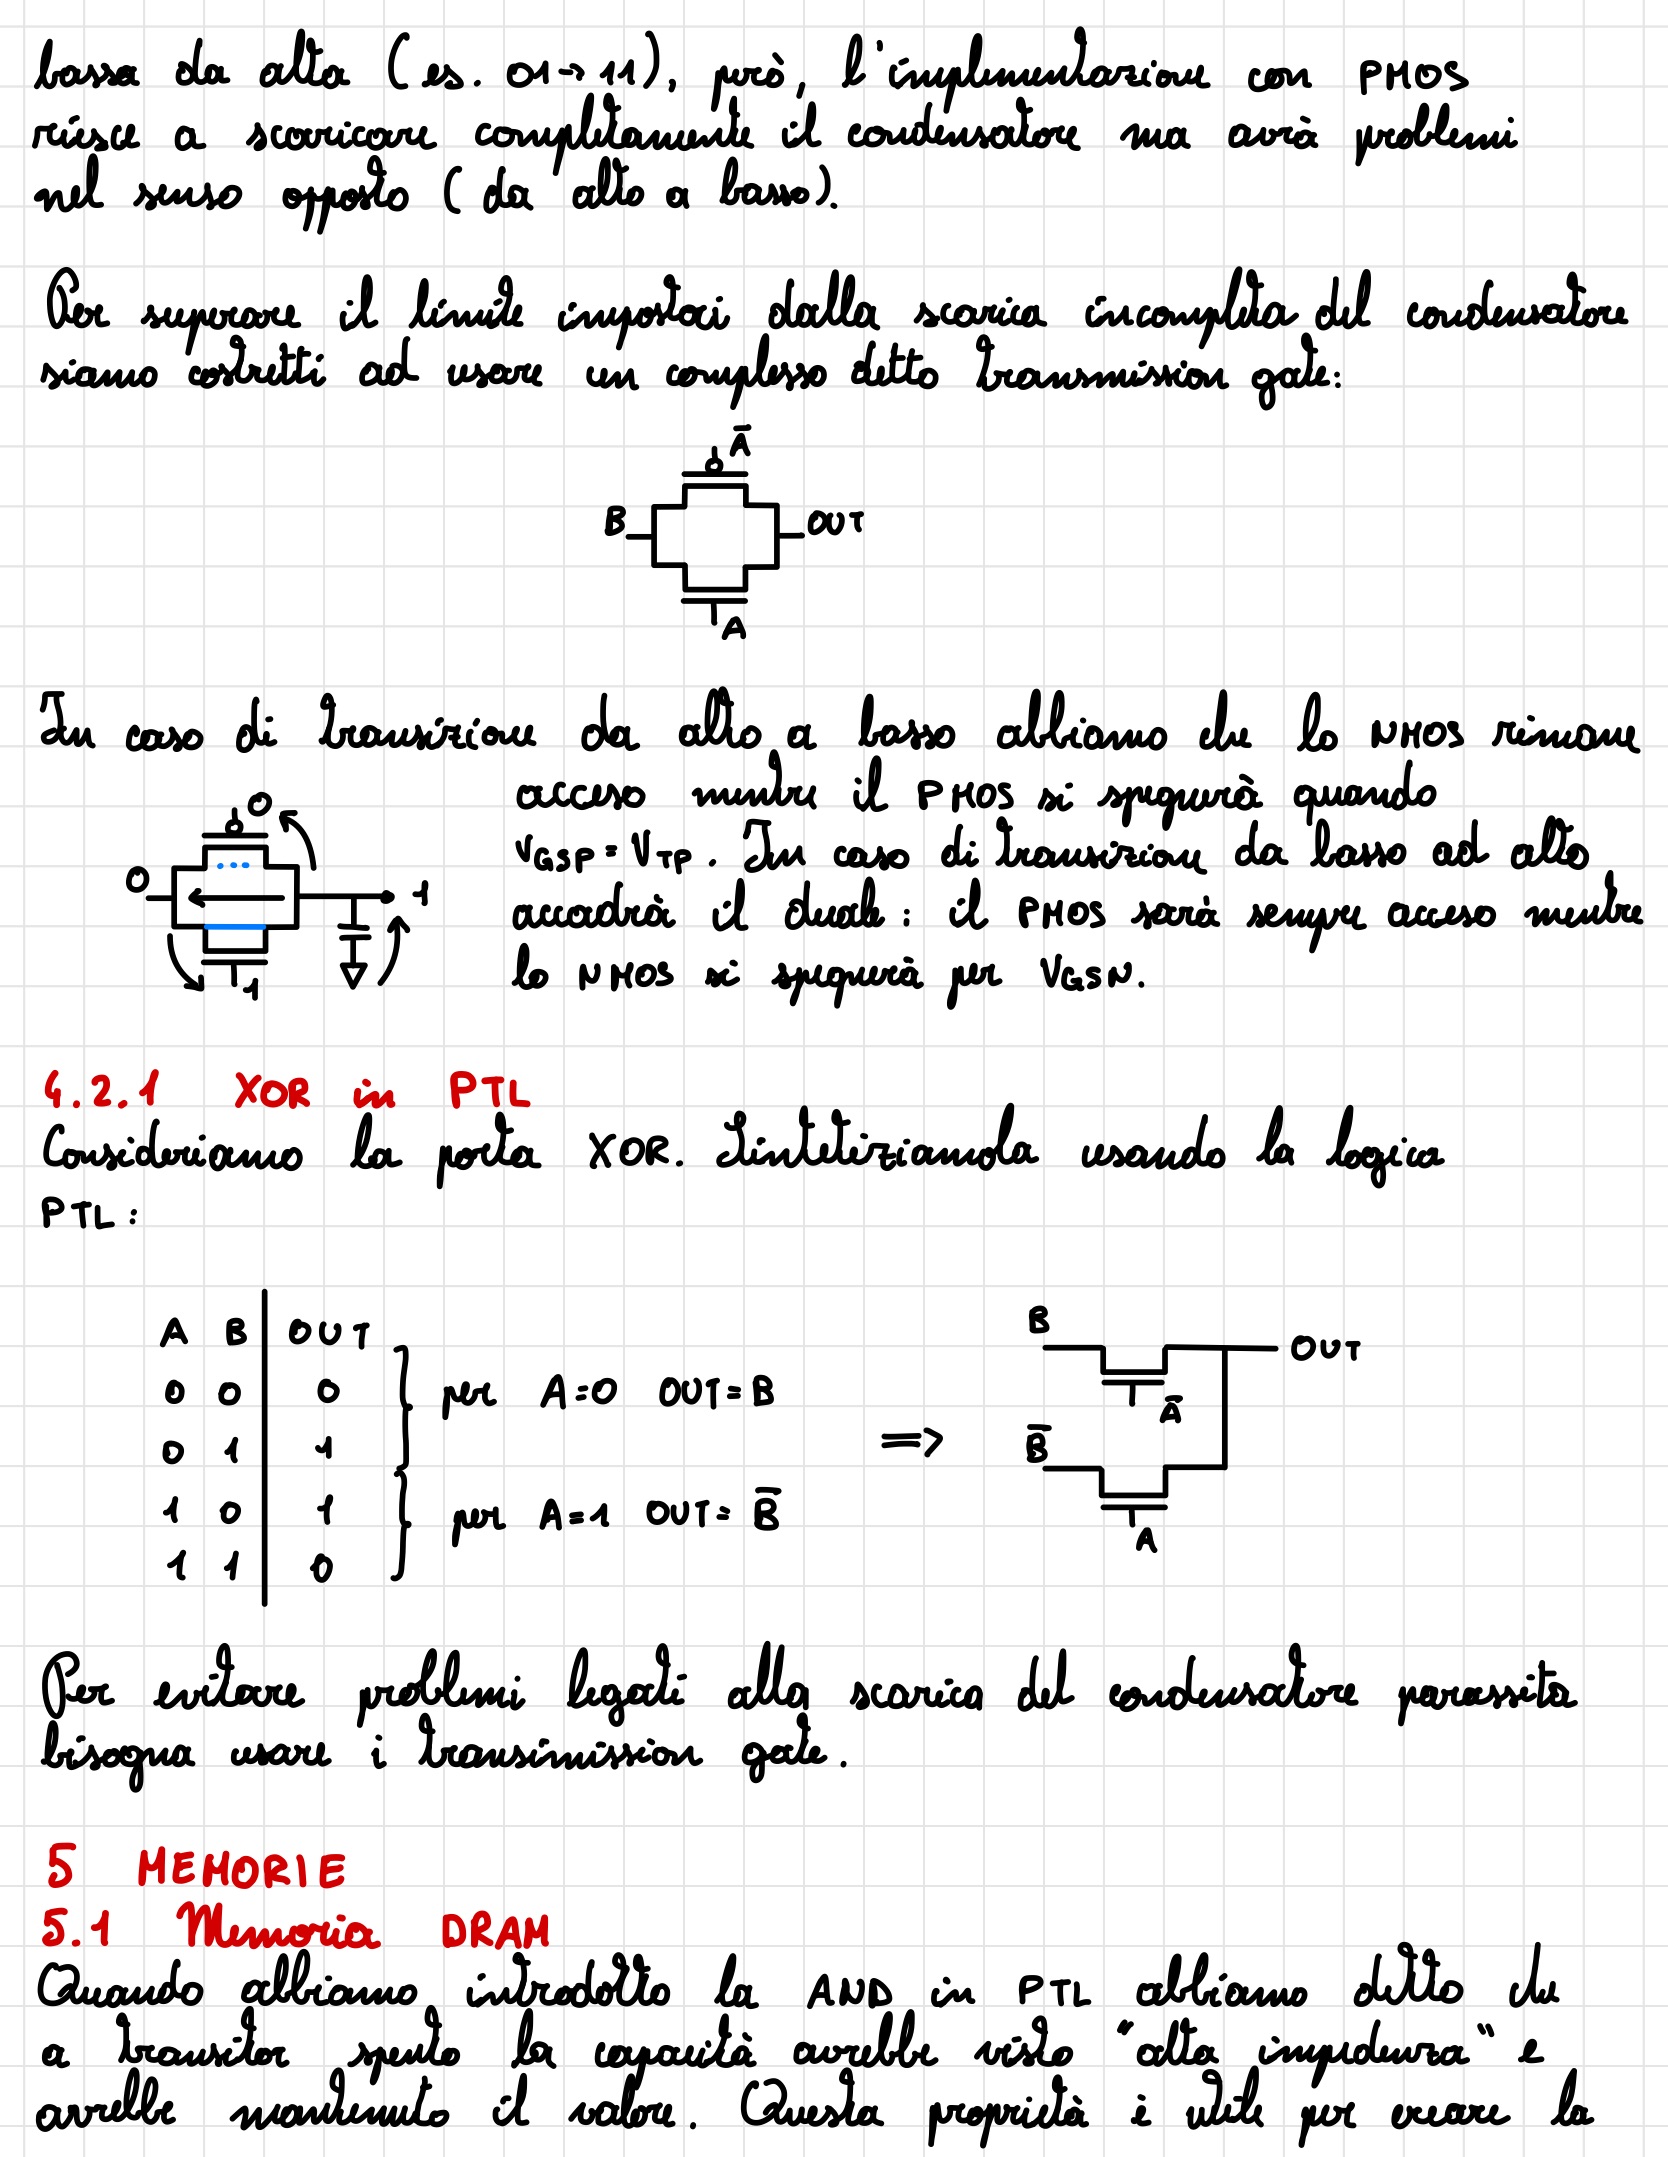 bassa da alta (es. 01→11), però, l'implementazione con PMOS
riesce a scaricare completamente il condensatore ma avrà problemi
nel senso opposto (da alto a basso).
Per superare il limite impostoci dalla scarica incompleta del condensatore
siamo costretti ad usare un complesso detto transmission gate:
Ā
B OUT
A
In caso di transizione da alto a basso abbiamo che lo NMOS rimane
acceso mentre il PMOS si spegnerà quando
VGSP = VTP. In caso di transizione da basso ad alto
accadrà il duale: il PMOS sarà sempre acceso mentre
lo NMOS si spegnerà per VGSN.
0
0 1
1
4.2.1 XOR in PTL
Consideriamo la porta XOR. Sintetizziamola usando la logica
PTL:
A B OUT
0 0 0
0 1 1
1 0 1
1 1 0
per A=0 OUT=B
per A=1 OUT= B̅
⇒
B OUT
Ā
B̅
A
Per evitare problemi legati alla scarica del condensatore parassita
bisogna usare i transimission gate.
5 MEMORIE
5.1 Memoria DRAM
Quando abbiamo introdotto la AND in PTL abbiamo detto che
a transitor spento la capacità avrebbe visto "alta impedenza" e
avrebbe mantenuto il valore. Questa proprietà è utile per creare la